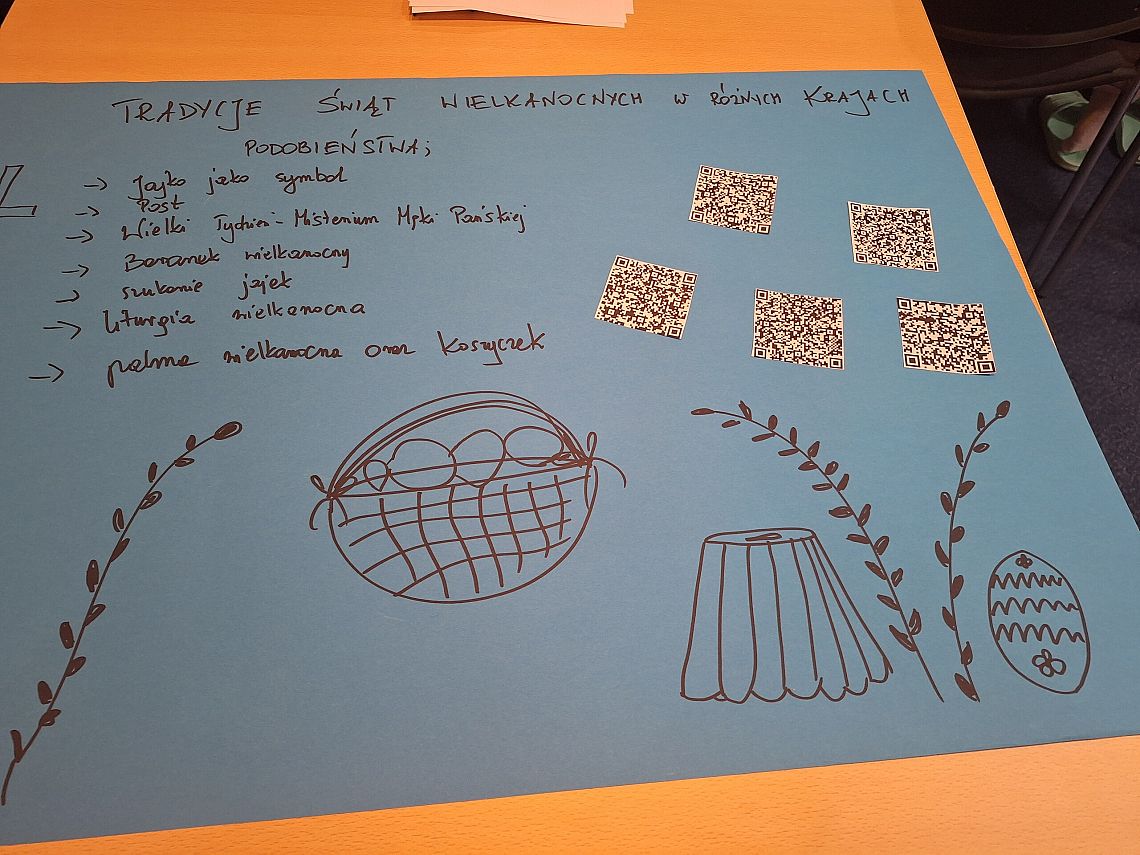 TRADYCJE ŚWIĄT WIELKANOCNYCH W RÓŻNYCH KRAJACH
PODOBIEŃSTWA;
→ Jajko jako symbol
→ Post
→ Wielki Tydzień - Misterium Męki Pańskiej
→ Baranek wielkanocny
→ szukanie jajek
→ liturgia wielkanocna
→ palma wielkanocna oraz koszyczek